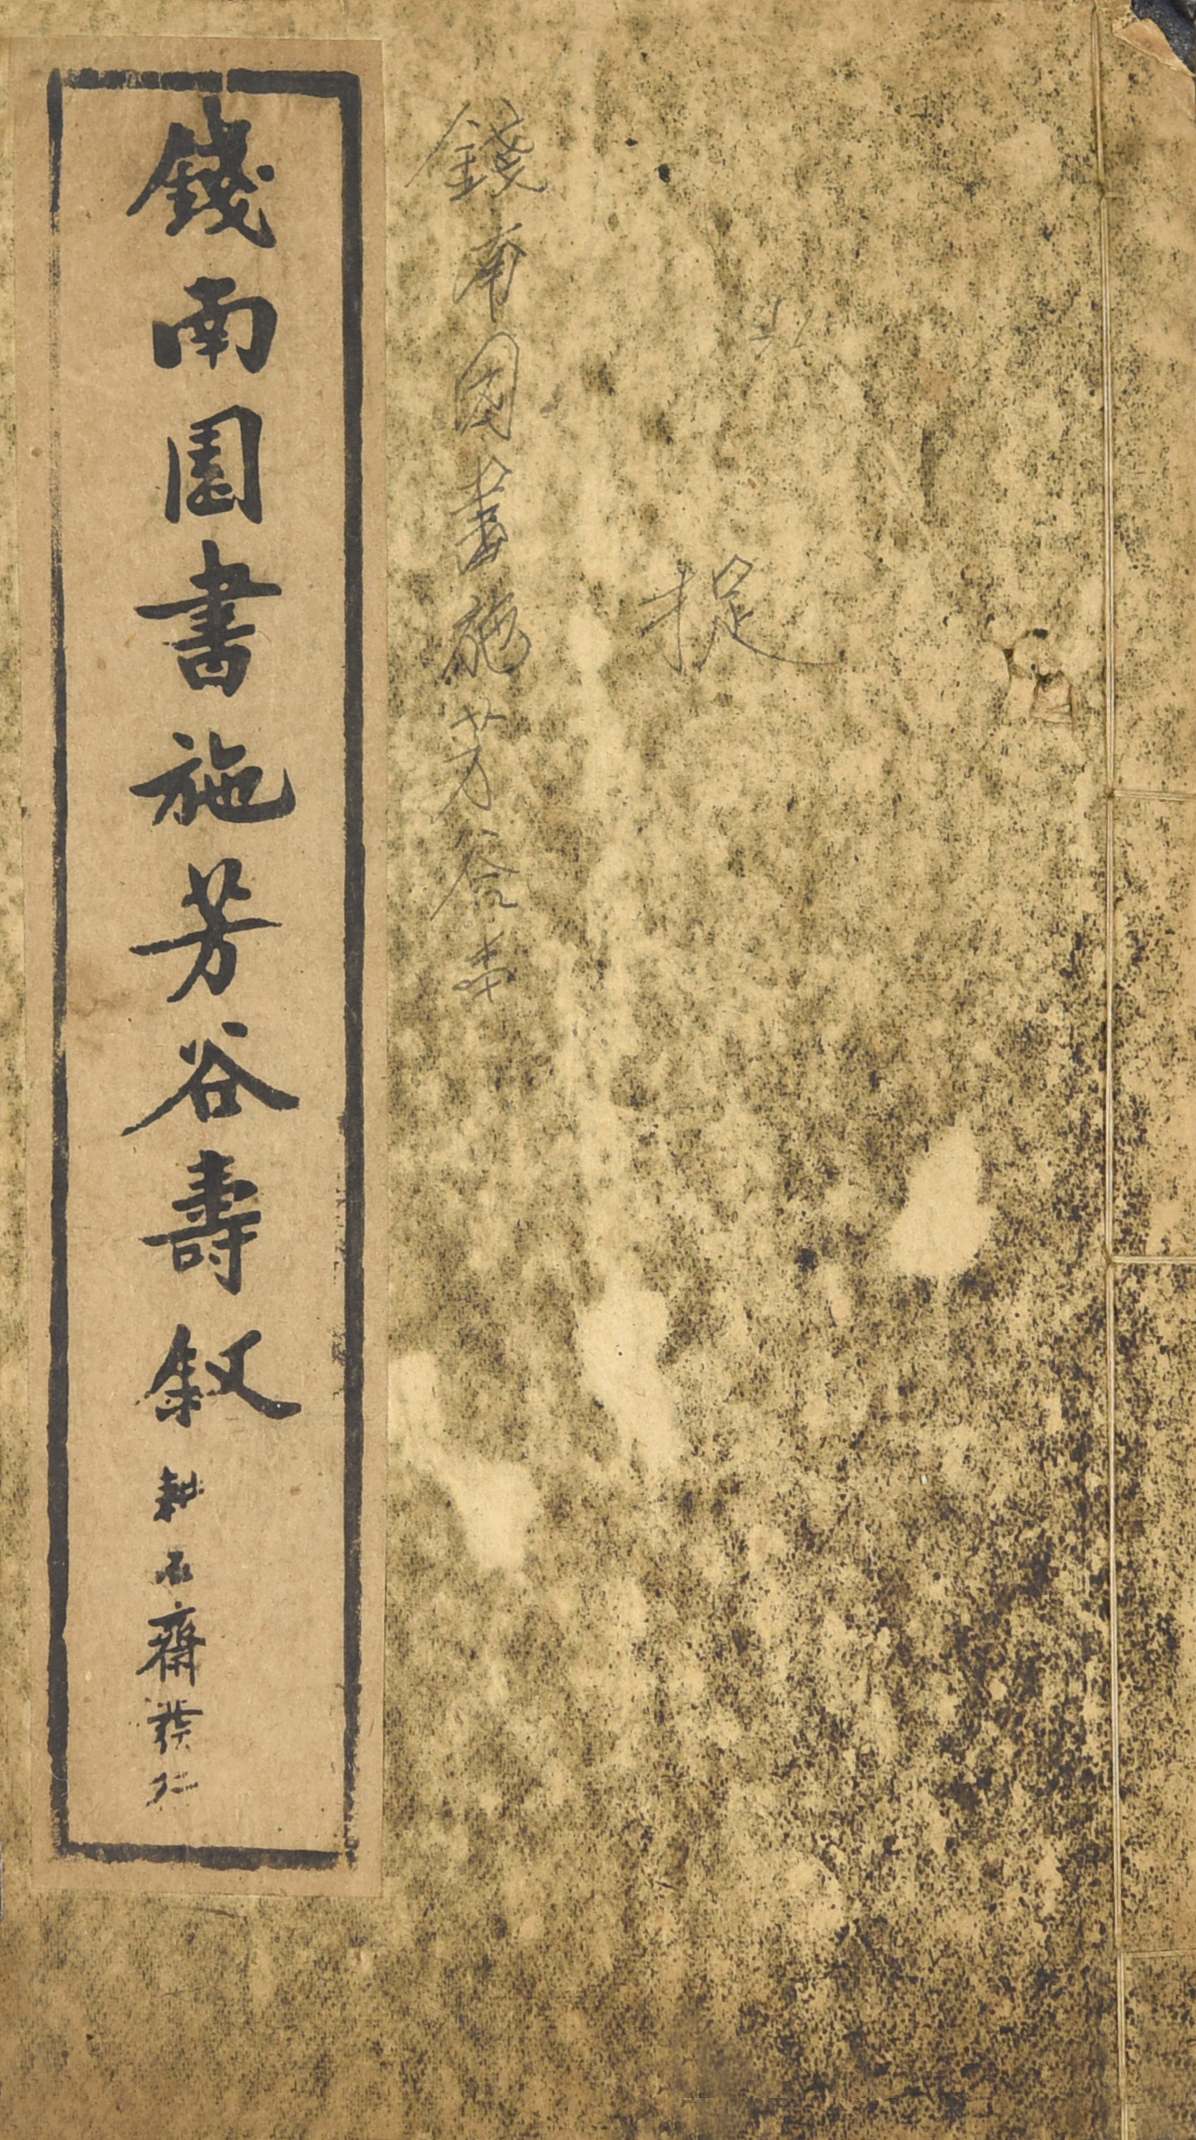 捉
錢南园書施芳谷寿
錢南園書施芳谷壽叙
耕石齋發行